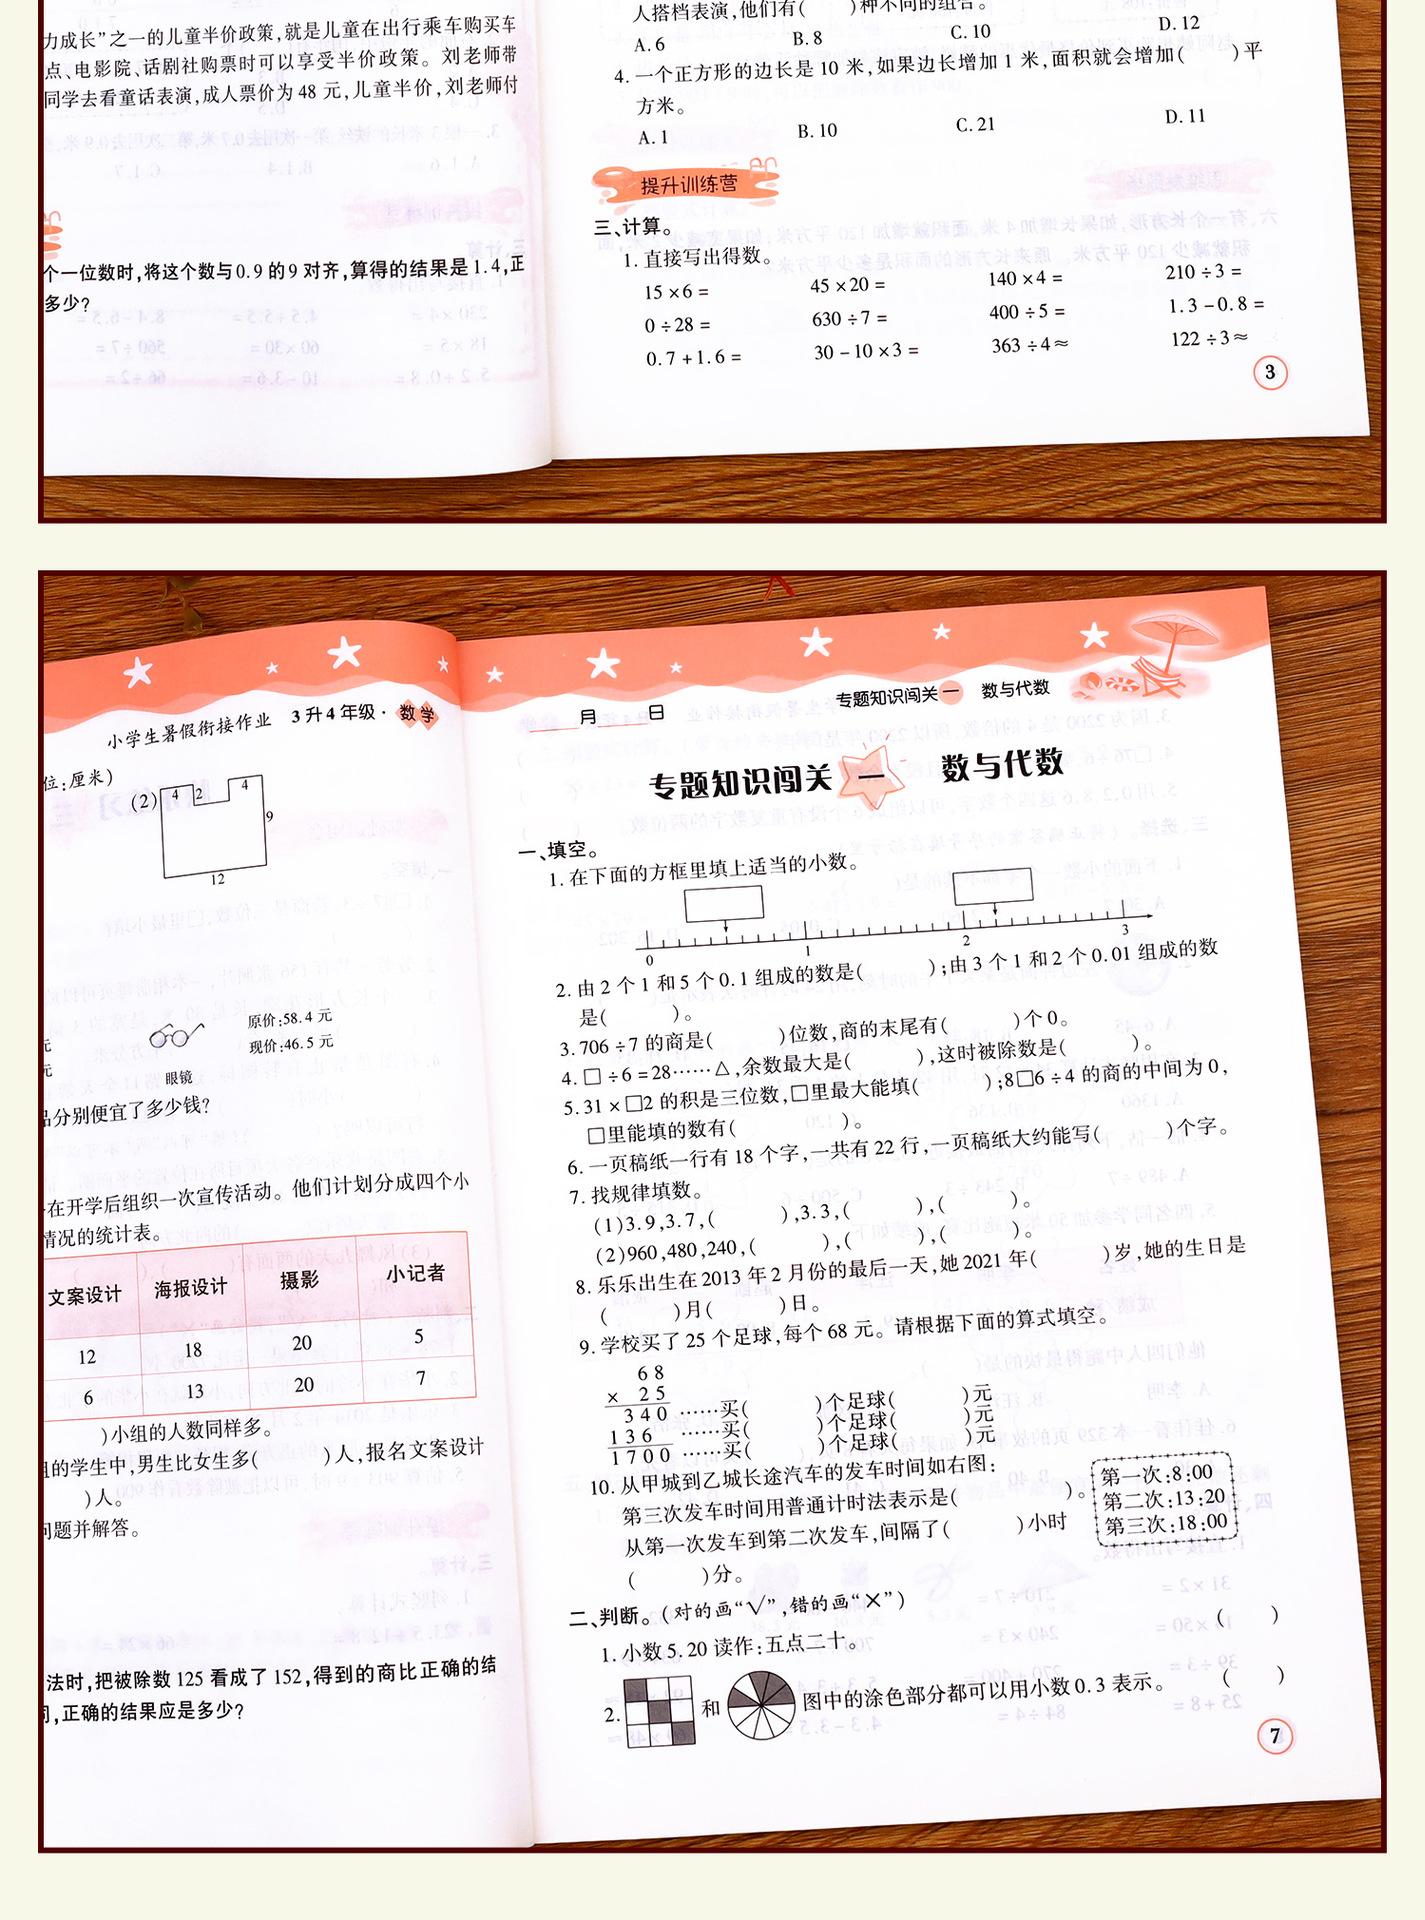 力成长”之一的儿童半价政策,就是儿童在出行乘车购买车
点、电影院、话剧社购票时可以享受半价政策。刘老师带
同学去看童话表演,成人票价为48元,儿童半价,刘老师付
个一位数时,将这个数与0.9的9对齐,算得的结果是1.4,正
多少?
人搭档表演,他们有(  )种不同的组合。
A.6 B.8 C.10 D.12
4.一个正方形的边长是10米,如果边长增加1米,面积就会增加(  )平
方米。
A.1 B.10 C.21 D.11
提升训练营
三、计算。
1.直接写出得数。
15×6= 45×20= 140×4= 210÷3=
0÷28= 630÷7= 400÷5= 1.3-0.8=
0.7+1.6= 30-10×3= 363÷4≈ 122÷3≈
3
小学生暑假衔接作业 3升4年级·数学
位:厘米)
(2) 4 2 4
9
12
原价:58.4元
现价:46.5元
元
元
眼镜
品分别便宜了多少钱?
在开学后组织一次宣传活动。他们计划分成四个小
情况的统计表。
文案设计 海报设计 摄影 小记者
12 18 20 5
6 13 20 7
)小组的人数同样多。
组的学生中,男生比女生多(  )人,报名文案设计
)人。
问题并解答。
法时,把被除数125看成了152,得到的商比正确的结
,正确的结果应是多少?
月 日
专题知识闯关一 数与代数
专题知识闯关 一 数与代数
一、填空。
1.在下面的方框里填上适当的小数。
0 1 2 3
2.由2个1和5个0.1组成的数是(  );由3个1和2个0.01组成的数
是(  )。
3.706÷7的商是(  )位数,商的末尾有(  )个0。
4.□÷6=28……△,余数最大是(  ),这时被除数是(  )。
5.31×□2的积是三位数,□里最大能填(  );8□6÷4的商的中间为0,
□里能填的数有(  )。
6.一页稿纸一行有18个字,一共有22行,一页稿纸大约能写(  )个字。
7.找规律填数。
(1)3.9,3.7,(  ),3.3,(  ),(  )。
(2)960,480,240,(  ),(  ),(  )。
8.乐乐出生在2013年2月份的最后一天,她2021年(  )岁,她的生日是
(  )月(  )日。
9.学校买了25个足球,每个68元。请根据下面的算式填空。
68
× 25
340 ……买(  )个足球(  )元
136 ……买(  )个足球(  )元
1700 ……买(  )个足球(  )元
10.从甲城到乙城长途汽车的发车时间如右图:
第三次发车时间用普通计时法表示是(  )。
从第一次发车到第二次发车,间隔了(  )小时
(  )分。
第一次:8:00
第二次:13:20
第三次:18:00
二、判断。(对的画“√”,错的画“×”)
1.小数5.20读作:五点二十。 (  )
2. 和 图中的涂色部分都可以用小数0.3表示。 (  )
7